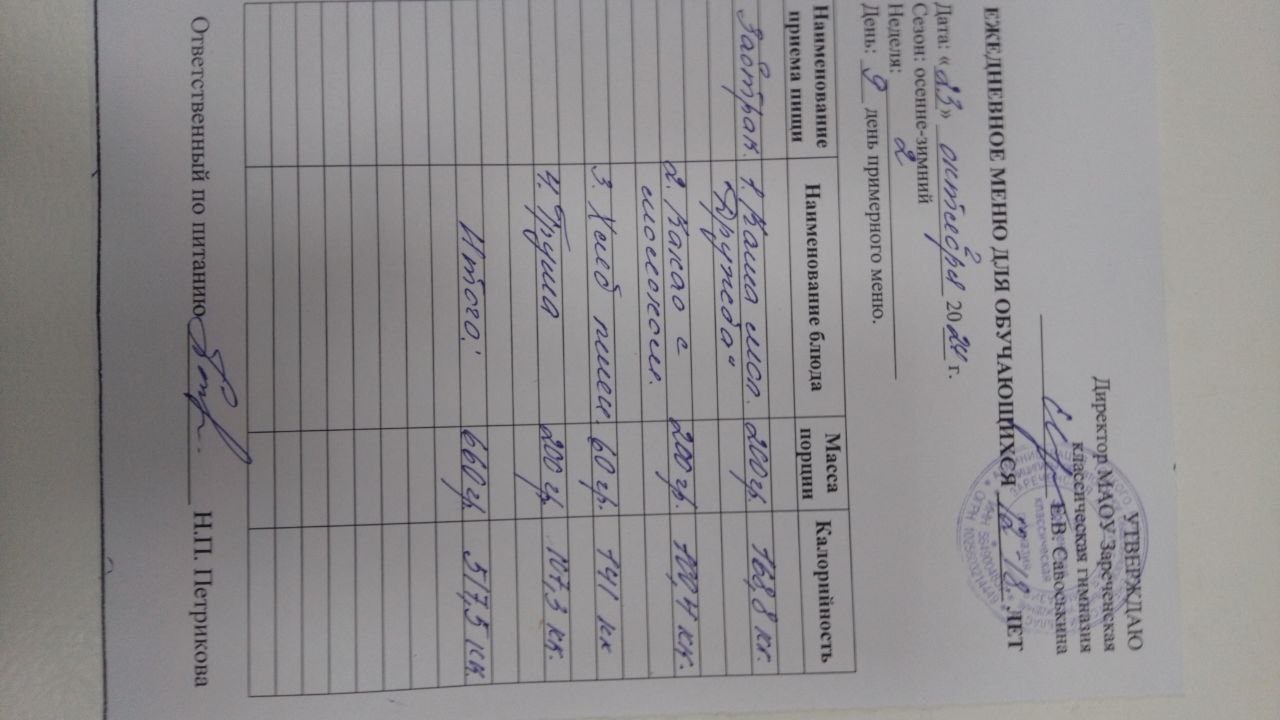 УТВЕРЖДАЮ
Директор МАОУ Зареченская
классическая гимназия
Е.В. Савоськина
ЕЖЕДНЕВНОЕ МЕНЮ ДЛЯ ОБУЧАЮЩИХСЯ 12-18 ЛЕТ
Дата: «23» октября 2024 г.
Сезон: осенне-зимний
Неделя: 2
День: 9 день примерного меню.
Наименование приема пищи Наименование блюда Масса порции Калорийность
Завтрак. 1. Каша мол. 200гр. 168,8 кк.
"Дружба"
2. Какао с 200гр. 100,4 кк.
молоком.
3. Хлеб пшен. 60гр. 141 кк
4. Груша 200гр. 107,3 кк.
Итого: 660гр. 517,5 кк.
Ответственный по питанию Н.П. Петрикова